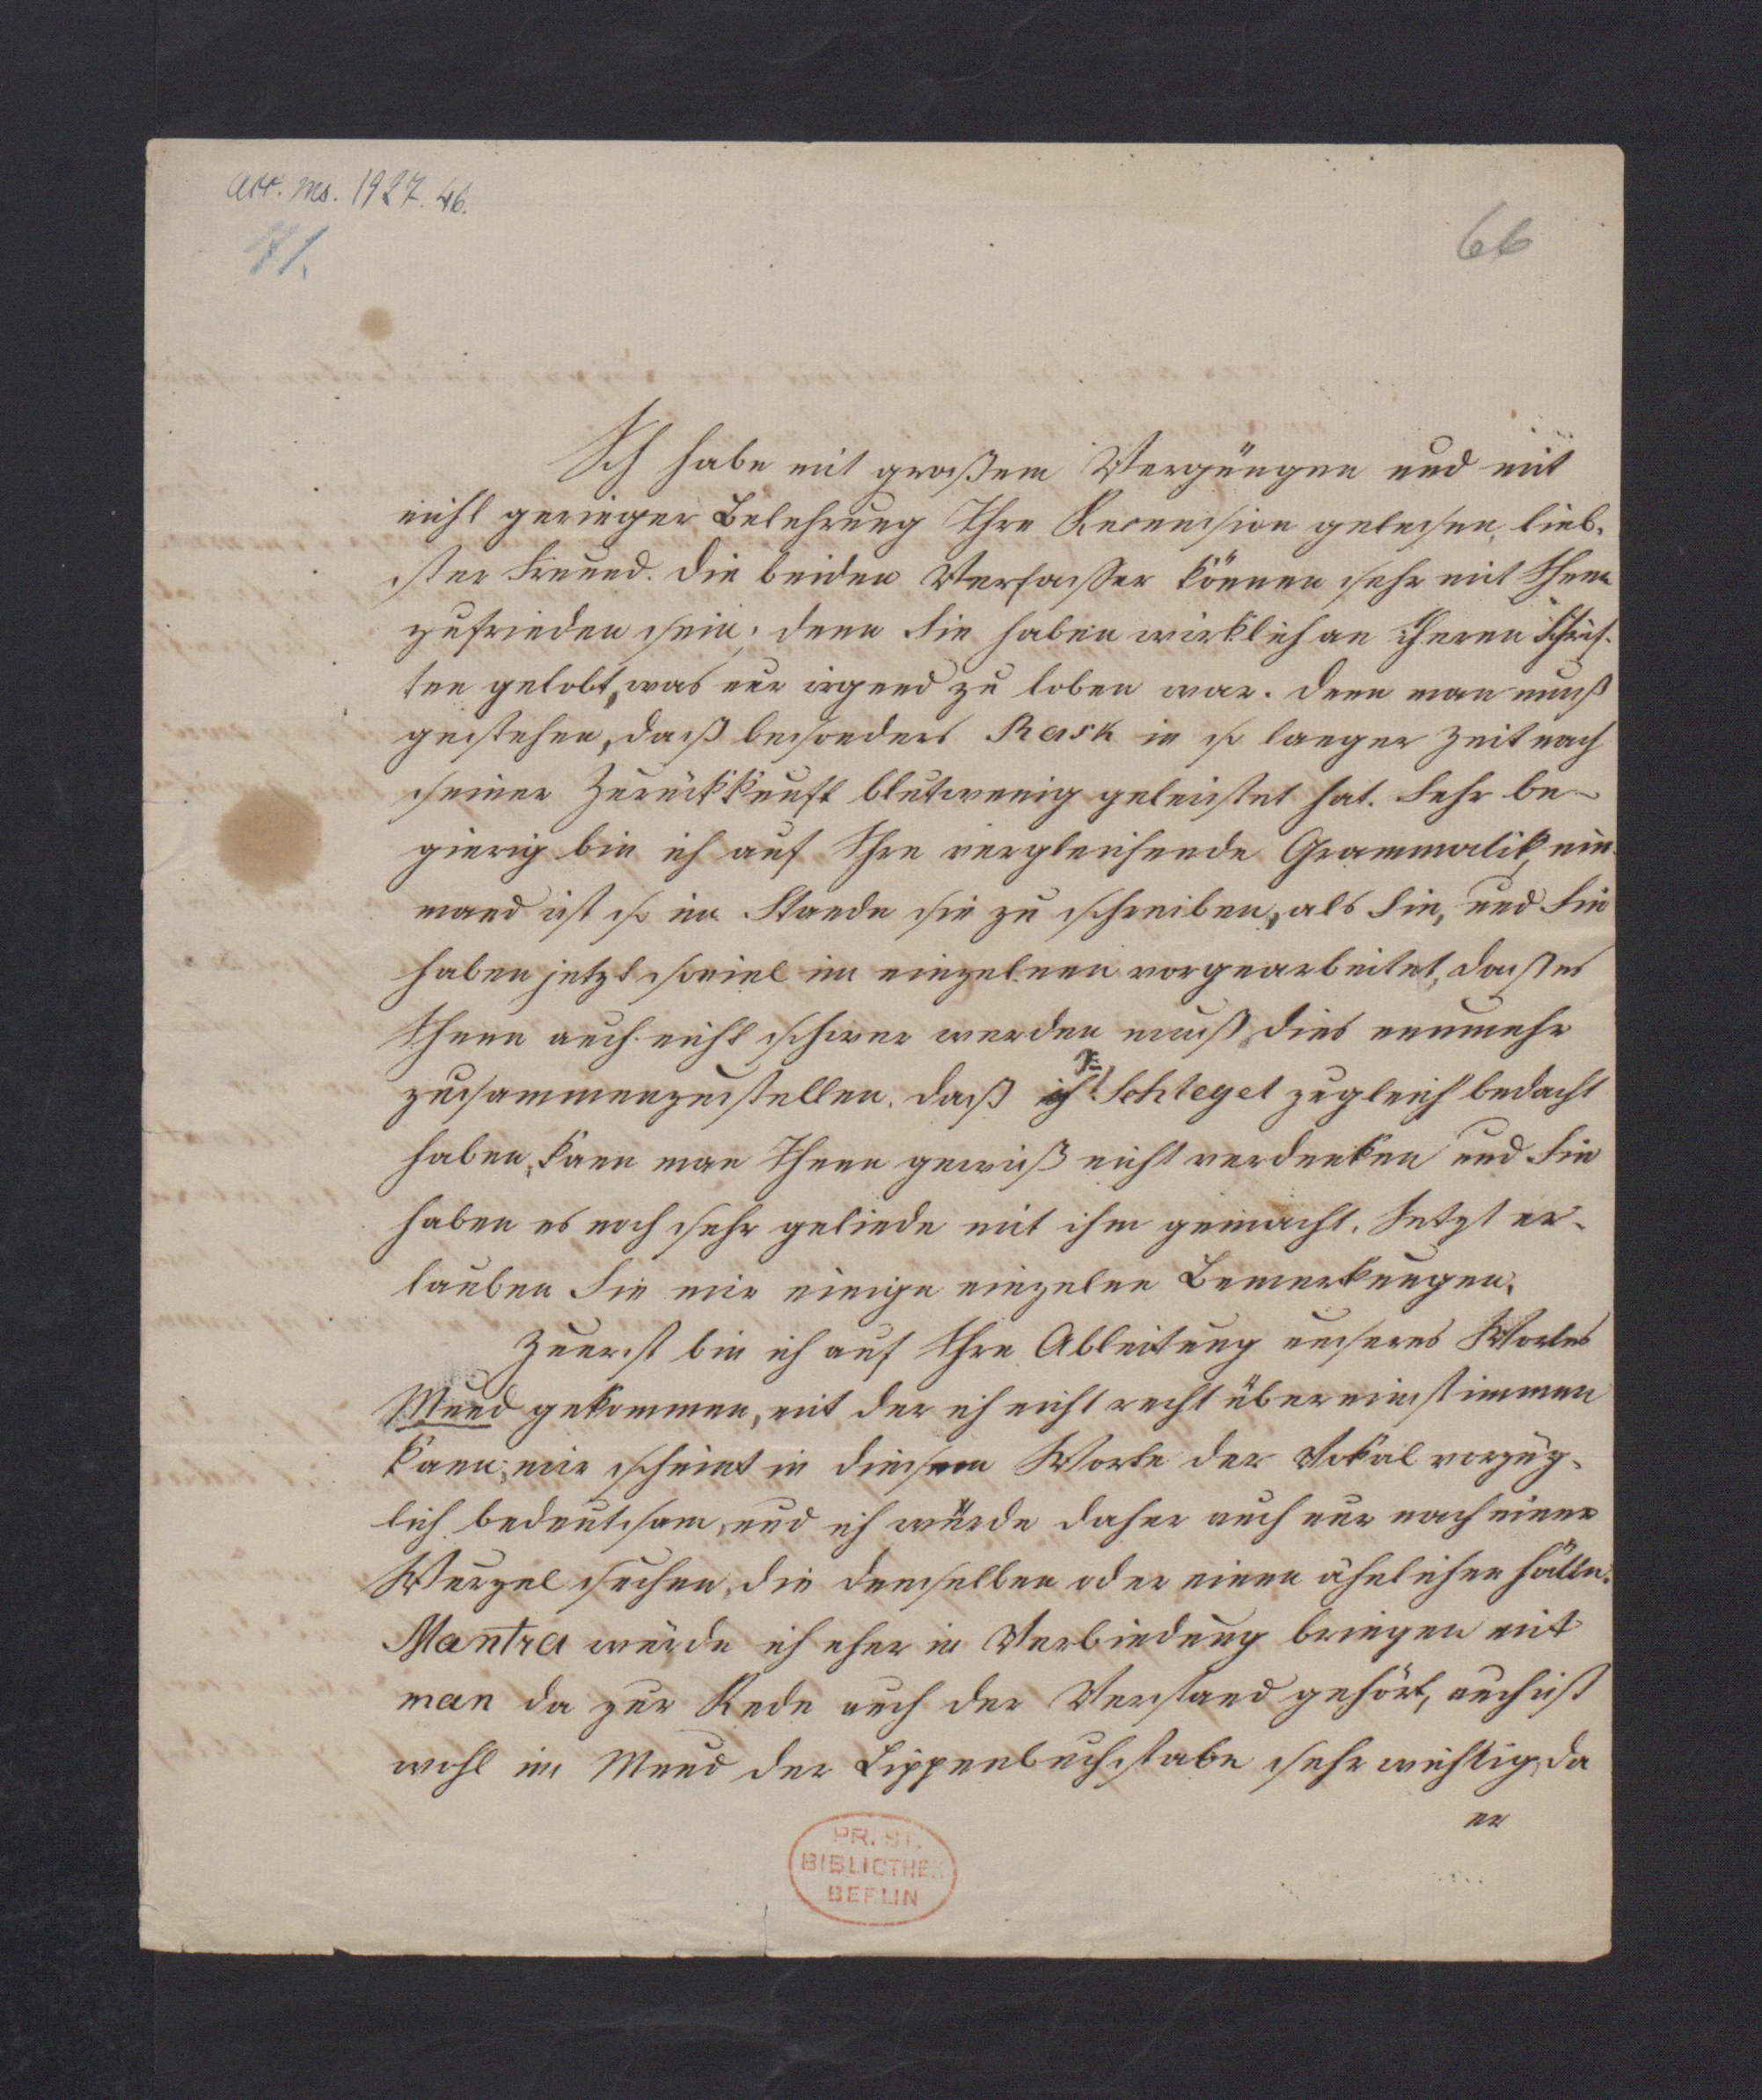 acc. ms. 1927. 46.
41.
66
Ich habe mit großem Vergnügen und mit
nicht geringer Belehrung Ihre Recension gelesen, lieb-
ster Freund. Die beiden Verfasser können sehr mit Ihnen
zufrieden sein; denn Sie haben wirklich an ihren Schrif-
ten gelobt, was nur irgend zu loben war. Denn man muß
gestehen, daß besonders Rask in so langer Zeit nach
seiner Zurückkunft blutwenig geleistet hat. Sehr be-
gierig bin ich auf Ihre vergleichende Grammatik, nie-
mand ist so im Stande sie zu schreiben, als Sie, und Sie
haben jetzt soviel im einzelnen vorgearbeitet, daß es
Ihnen auch nicht schwer werden muß dies nunmehr
zusammenzustellen. Daß Schlegel zugleich bedacht
haben, kann man Ihnen gewiß nicht verdenken und Sie
haben es noch sehr gelinde mit ihm gemacht. Jetzt er-
lauben Sie mir einige einzelne Bemerkungen.
Zuerst bin ich auf Ihre Ableitung unseres Wortes
Mund gekommen, mit der ich nicht recht übereinstimmen
kann; mir scheint in diesem Worte der Vokal vorzüg-
lich bedeutsam, und ich würde daher auch nur nach einer
Wurzel suchen, die denselben oder einen ähnlichen hätte.
Mantra würde ich eher in Verbindung bringen mit
man da zur Rede auch der Verstand gehört, auch ist
wohl im Mund der Lippenbuchstabe sehr wichtig, da
er
PR. ST.
BIBLIOTHEK
BERLIN